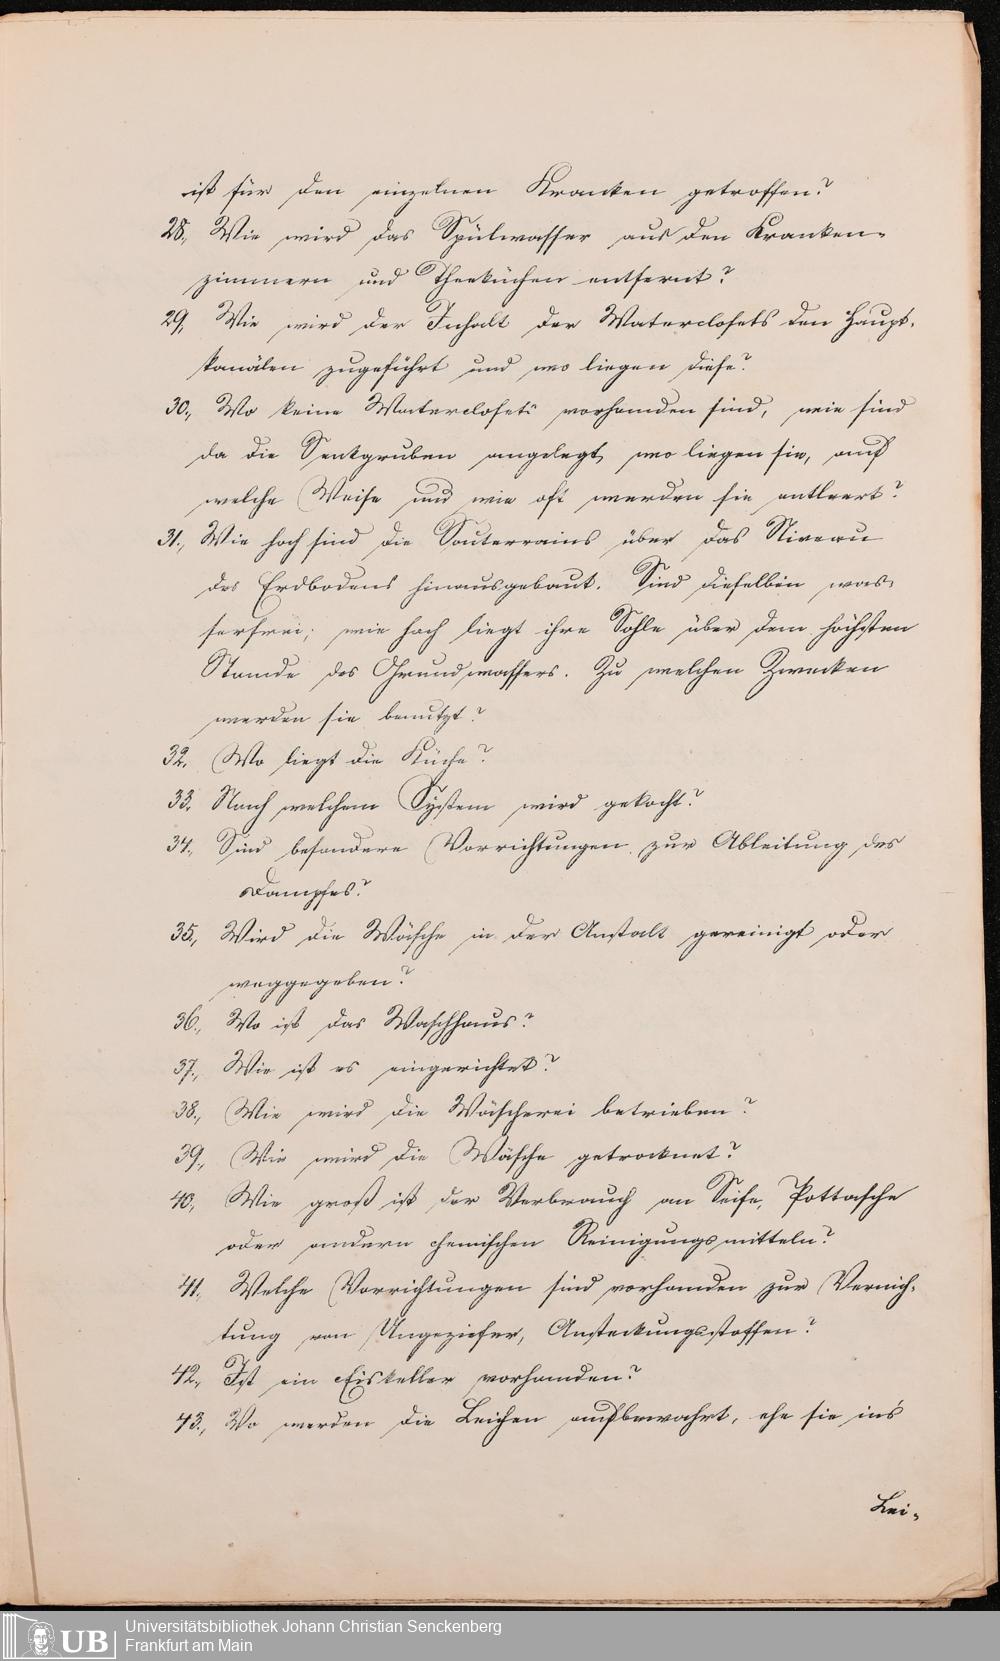 ist für den einzelnen Kranken getroffen?
28., Wie wird das Spülwasser aus den Kranken-
zimmern und Theeküchen entfernt?
29, Wie wird der Inhalt der Waterclosets den Haupt-
kanälen zugeführt und wo liegen diese?
30., Wo keine Waterclosets vorhanden sind, wie sind
da die Senkgruben angelegt, wo liegen sie, auf
welche Weise und wie oft werden sie entleert?
31., Wie hoch sind die Souterrains über das Niveau
des Erdbodens hinausgebaut. Sind dieselben was-
serfrei; wie hoch liegt ihre Sohle über dem höchsten
Stande des Grundwassers. Zu welchen Zwecken
werden sie benutzt?
32. Wo liegt die Küche?
33. Nach welchem System wird gekocht?
34., Sind besondere Vorrichtungen zur Ableitung des
Dampfes?
35., Wird die Wäsche in der Anstalt gereinigt oder
weggegeben?
36., Wo ist das Waschhaus?
37., Wie ist es eingerichtet?
38., Wie wird die Wäscherei betrieben?
39., Wie wird die Wäsche getrocknet?
40., Wie groß ist der Verbrauch an Seife, Pottasche
oder andern chemischen Reinigungsmitteln?
41. Welche Vorrichtungen sind vorhanden zur Vernich-
tung von Ungeziefer, Ansteckungsstoffen?
42., Ist ein Eiskeller vorhanden?
43., Wo werden die Leichen aufbewahrt, ehe sie in's
Lei-
UB
Universitätsbibliothek Johann Christian Senckenberg
Frankfurt am Main